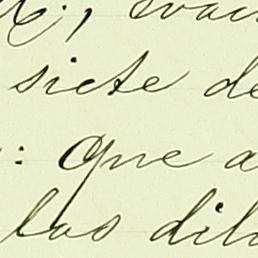 siete de
: Que a
las dil